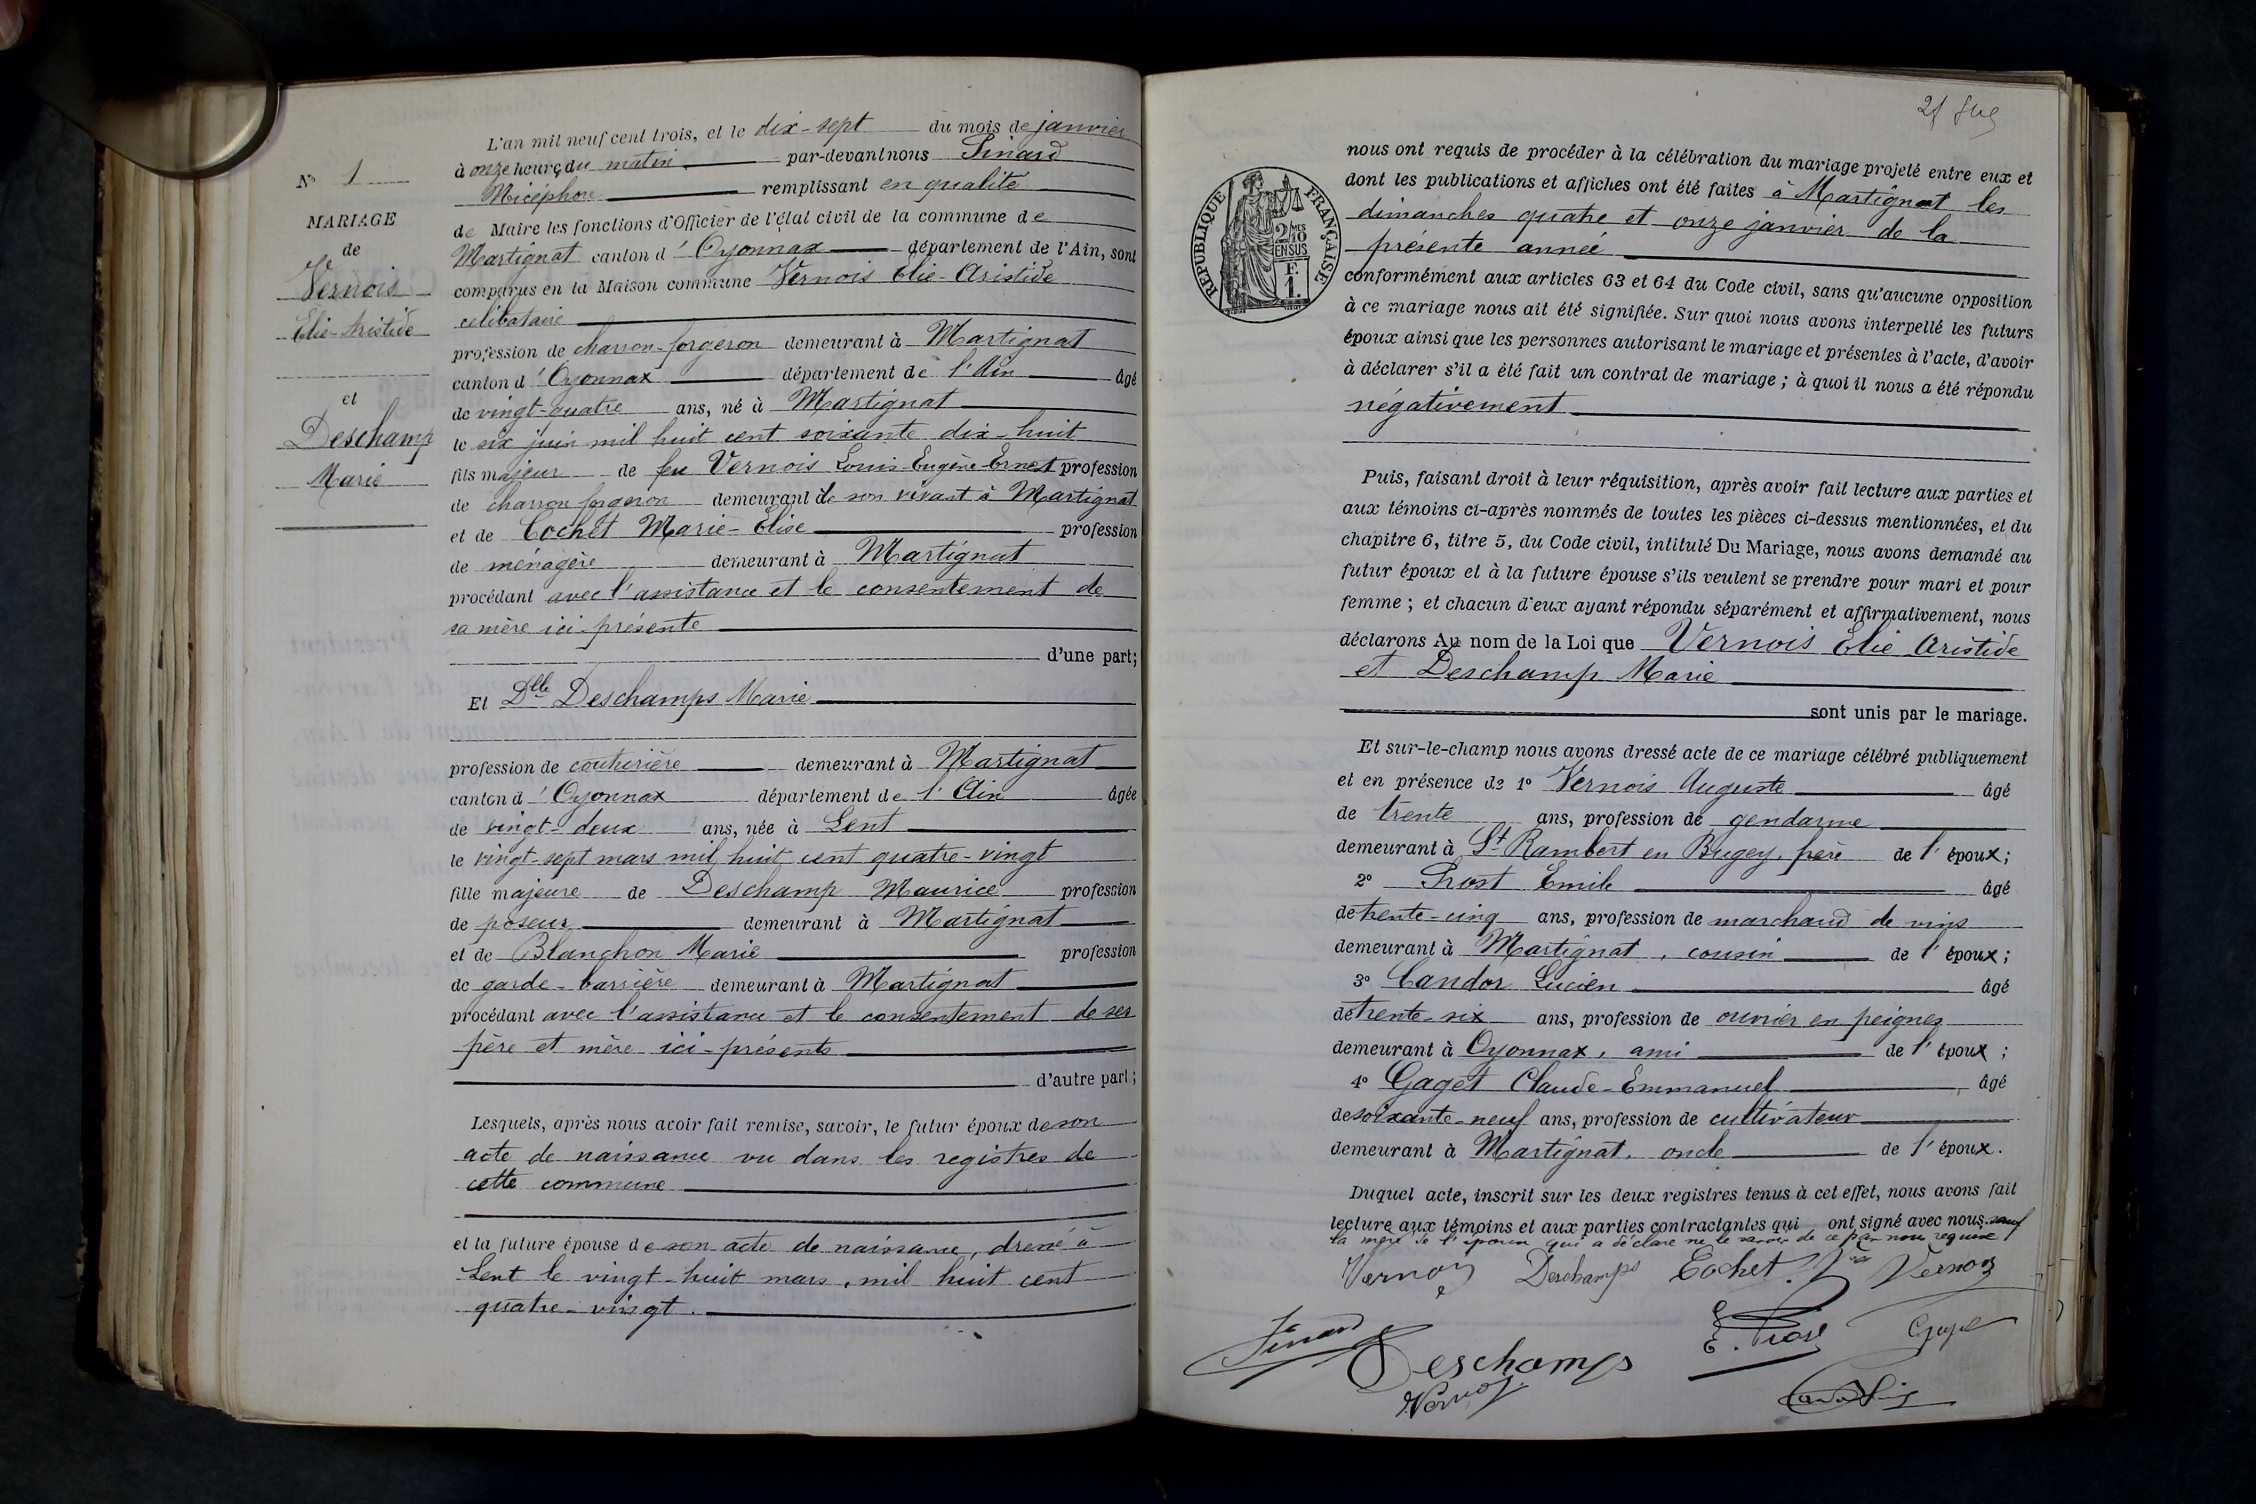 L'an mil neuf cent trois, et le dix-sept du mois de janvier
à onze heures du matin par-devant nous Sinard
Nicéphore remplissant en qualité
de Maire les fonctions d'Officier de l'état civil de la commune de
Martignat canton d'Oyonnax département de l'Ain, sont
comparus en la Maison commune Vernois Elie-Aristide
célibataire
profession de charron-forgeron demeurant à Martignat
canton d'Oyonnax département de l'Ain âgé
de vingt-quatre ans, né à Martignat
le six juin mil huit cent soixante dix-huit
fils majeur de feu Vernois Louis-Eugène-Ernest profession
de charron forgeron demeurant de son vivant à Martignat
et de Cochet Marie-Elise profession
de ménagère demeurant à Martignat
procédant avec l'assistance et le consentement de
sa mère ici-présente
d'une part;
Et Dlle Deschamps Marie
profession de couturière demeurant à Martignat
canton d'Oyonnax département de l'Ain âgée
de vingt-deux ans, née à Lent
le vingt-sept mars mil huit cent quatre-vingt
fille majeure de Deschamp Maurice profession
de poseur demeurant à Martignat
et de Blanchon Marie profession
de garde-barrière demeurant à Martignat
procédant avec l'assistance et le consentement de ses
père et mère ici-présents
d'autre part;
Lesquels, après nous avoir fait remise, savoir, le futur époux de son
acte de naissance vu dans les registres de
cette commune
et la future épouse de son acte de naissance, dressé à
Lent le vingt-huit mars, mil huit cent
quatre-vingt.
N° 1
MARIAGE
de
Vernois
Elie-Aristide
et
Deschamp
Marie
RÉPUBLIQUE FRANÇAISE
2/10
EN SUS
F.
1.
nous ont requis de procéder à la célébration du mariage projeté entre eux et
dont les publications et affiches ont été faites à Martignat les
dimanches quatre et onze janvier de la
présente année
conformément aux articles 63 et 64 du Code civil, sans qu'aucune opposition
à ce mariage nous ait été signifiée. Sur quoi nous avons interpellé les futurs
époux ainsi que les personnes autorisant le mariage et présentes à l'acte, d'avoir
à déclarer s'il a été fait un contrat de mariage; à quoi il nous a été répondu
négativement
Puis, faisant droit à leur réquisition, après avoir fait lecture aux parties et
aux témoins ci-après nommés de toutes les pièces ci-dessus mentionnées, et du
chapitre 6, titre 5, du Code civil, intitulé Du Mariage, nous avons demandé au
futur époux et à la future épouse s'ils veulent se prendre pour mari et pour
femme; et chacun d'eux ayant répondu séparément et affirmativement, nous
déclarons Au nom de la Loi que Vernois Elie Aristide
et Deschamp Marie
sont unis par le mariage.
Et sur-le-champ nous avons dressé acte de ce mariage célébré publiquement
et en présence de 1° Vernois Auguste âgé
de trente ans, profession de gendarme
demeurant à St Rambert en Bugey, frère de l'époux;
2° Prost Emile âgé
de trente-cinq ans, profession de marchand de vins
demeurant à Martignat, cousin de l'époux;
3° Candor Lucien âgé
de trente-six ans, profession de ouvrier en peignes
demeurant à Oyonnax, ami de l'époux;
4° Gaget Claude-Emmanuel âgé
de soixante-neuf ans, profession de cultivateur
demeurant à Martignat, oncle de l'époux.
Duquel acte, inscrit sur les deux registres tenus à cet effet, nous avons fait
lecture aux témoins et aux parties contractantes qui ont signé avec nous sauf
la mère de l'épouse qui a déclaré ne le savoir de ce par nous requise
Vernois Deschamps Cochet Vve Vernois
Sinard Deschamps E. Prost Gaget
Vernois